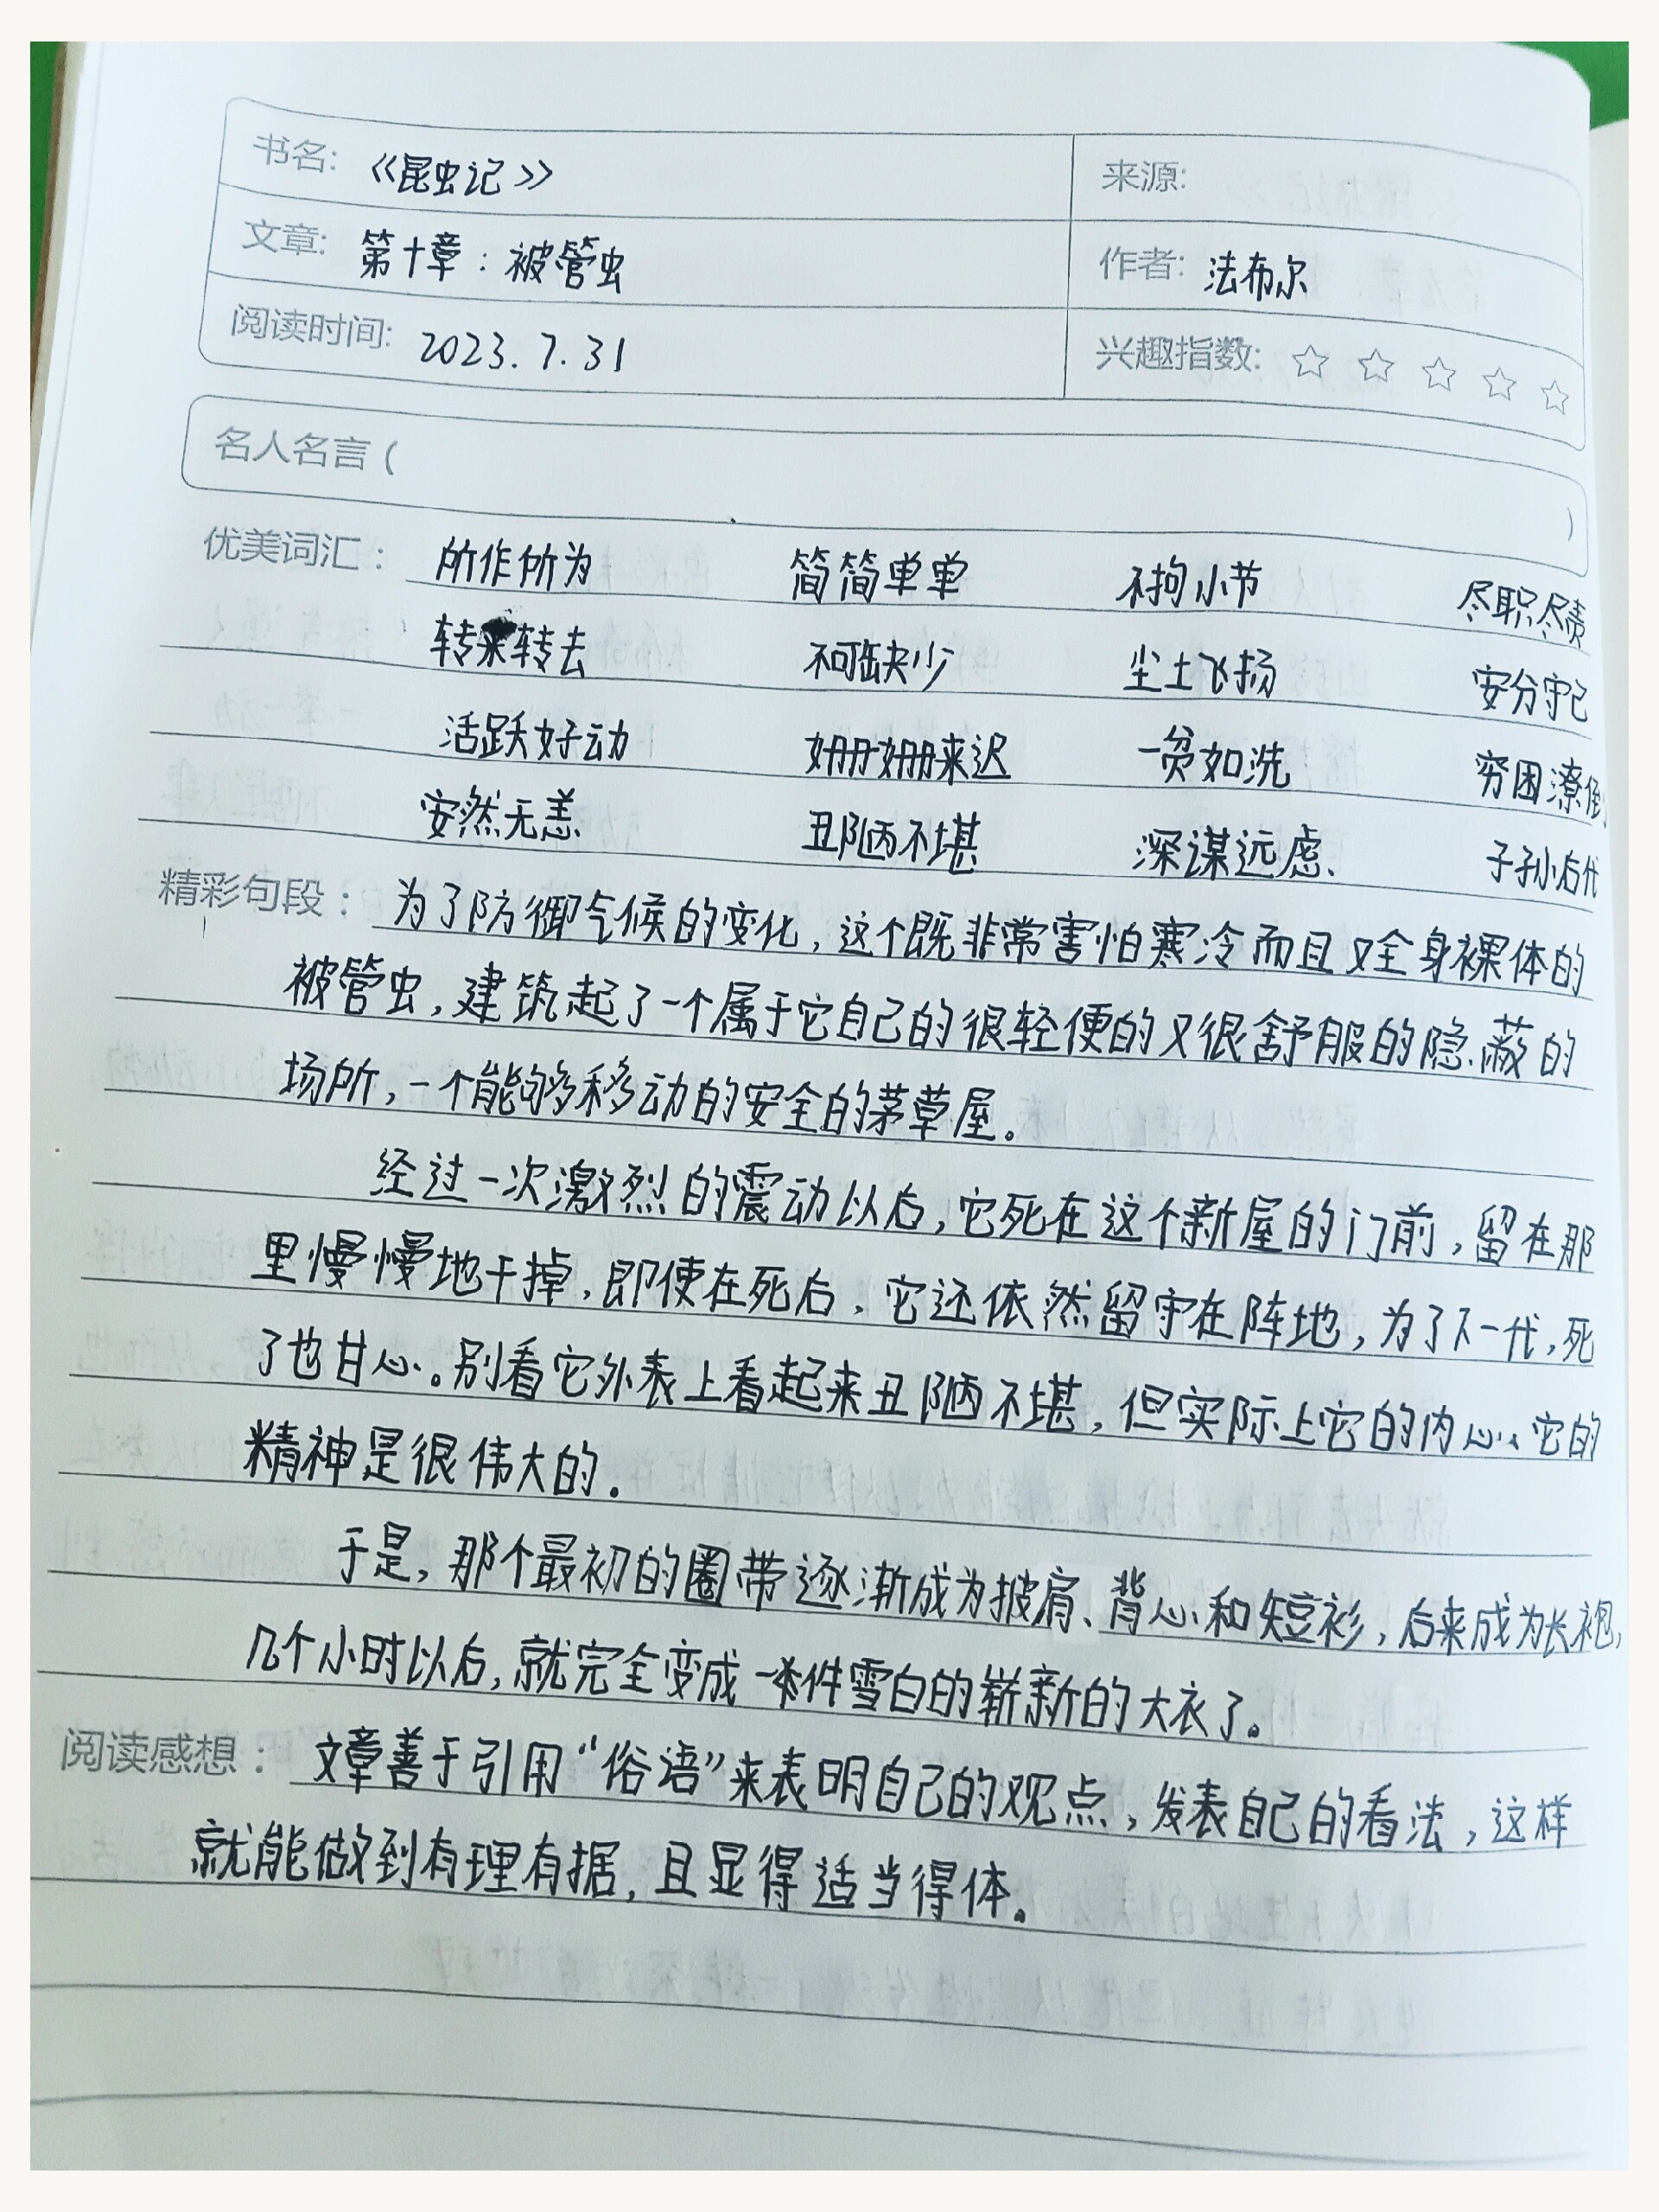 书名: 《昆虫记》 来源:
文章: 第十章：被管虫 作者: 法布尔
阅读时间: 2023.7.31 兴趣指数: ☆ ☆ ☆ ☆ ☆
名人名言 ( )
优美词汇： 所作所为 简简单单 不拘小节 尽职尽责
转来转去 不可缺少 尘土飞扬 安分守己
活跃好动 姗姗来迟 一贫如洗 穷困潦倒
安然无恙 丑陋不堪 深谋远虑、 子子孙后代
精彩句段： 为了防御气候的变化，这个既非常害怕寒冷而且又全身裸体的
被管虫，建筑起了一个属于它自己的很轻便的又很舒服的隐蔽的
场所，一个能够移动的安全的茅草屋。
经过一次激烈的震动以后，它死在这个新屋的门前，留在那
里慢慢地干掉，即使在死后，它还依然留守在阵地，为了下一代，死
了也甘心。别看它外表上看起来丑陋不堪，但实际上它的内心、它的
精神是很伟大的．
于是，那个最初的圈带逐渐成为披肩、背心和短衫，后来成为长袍，
几个小时以后，就完全变成一件雪白的崭新的大衣了。
阅读感想： 文章善于引用“俗语”来表明自己的观点，发表自己的看法，这样
就能做到有理有据，且显得适当得体。